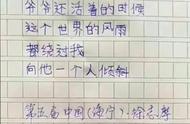 爷爷还活着的时候
这个世界的风雨
都绕过我
向他一个人倾斜
第五届中国(海宁)·徐志摩